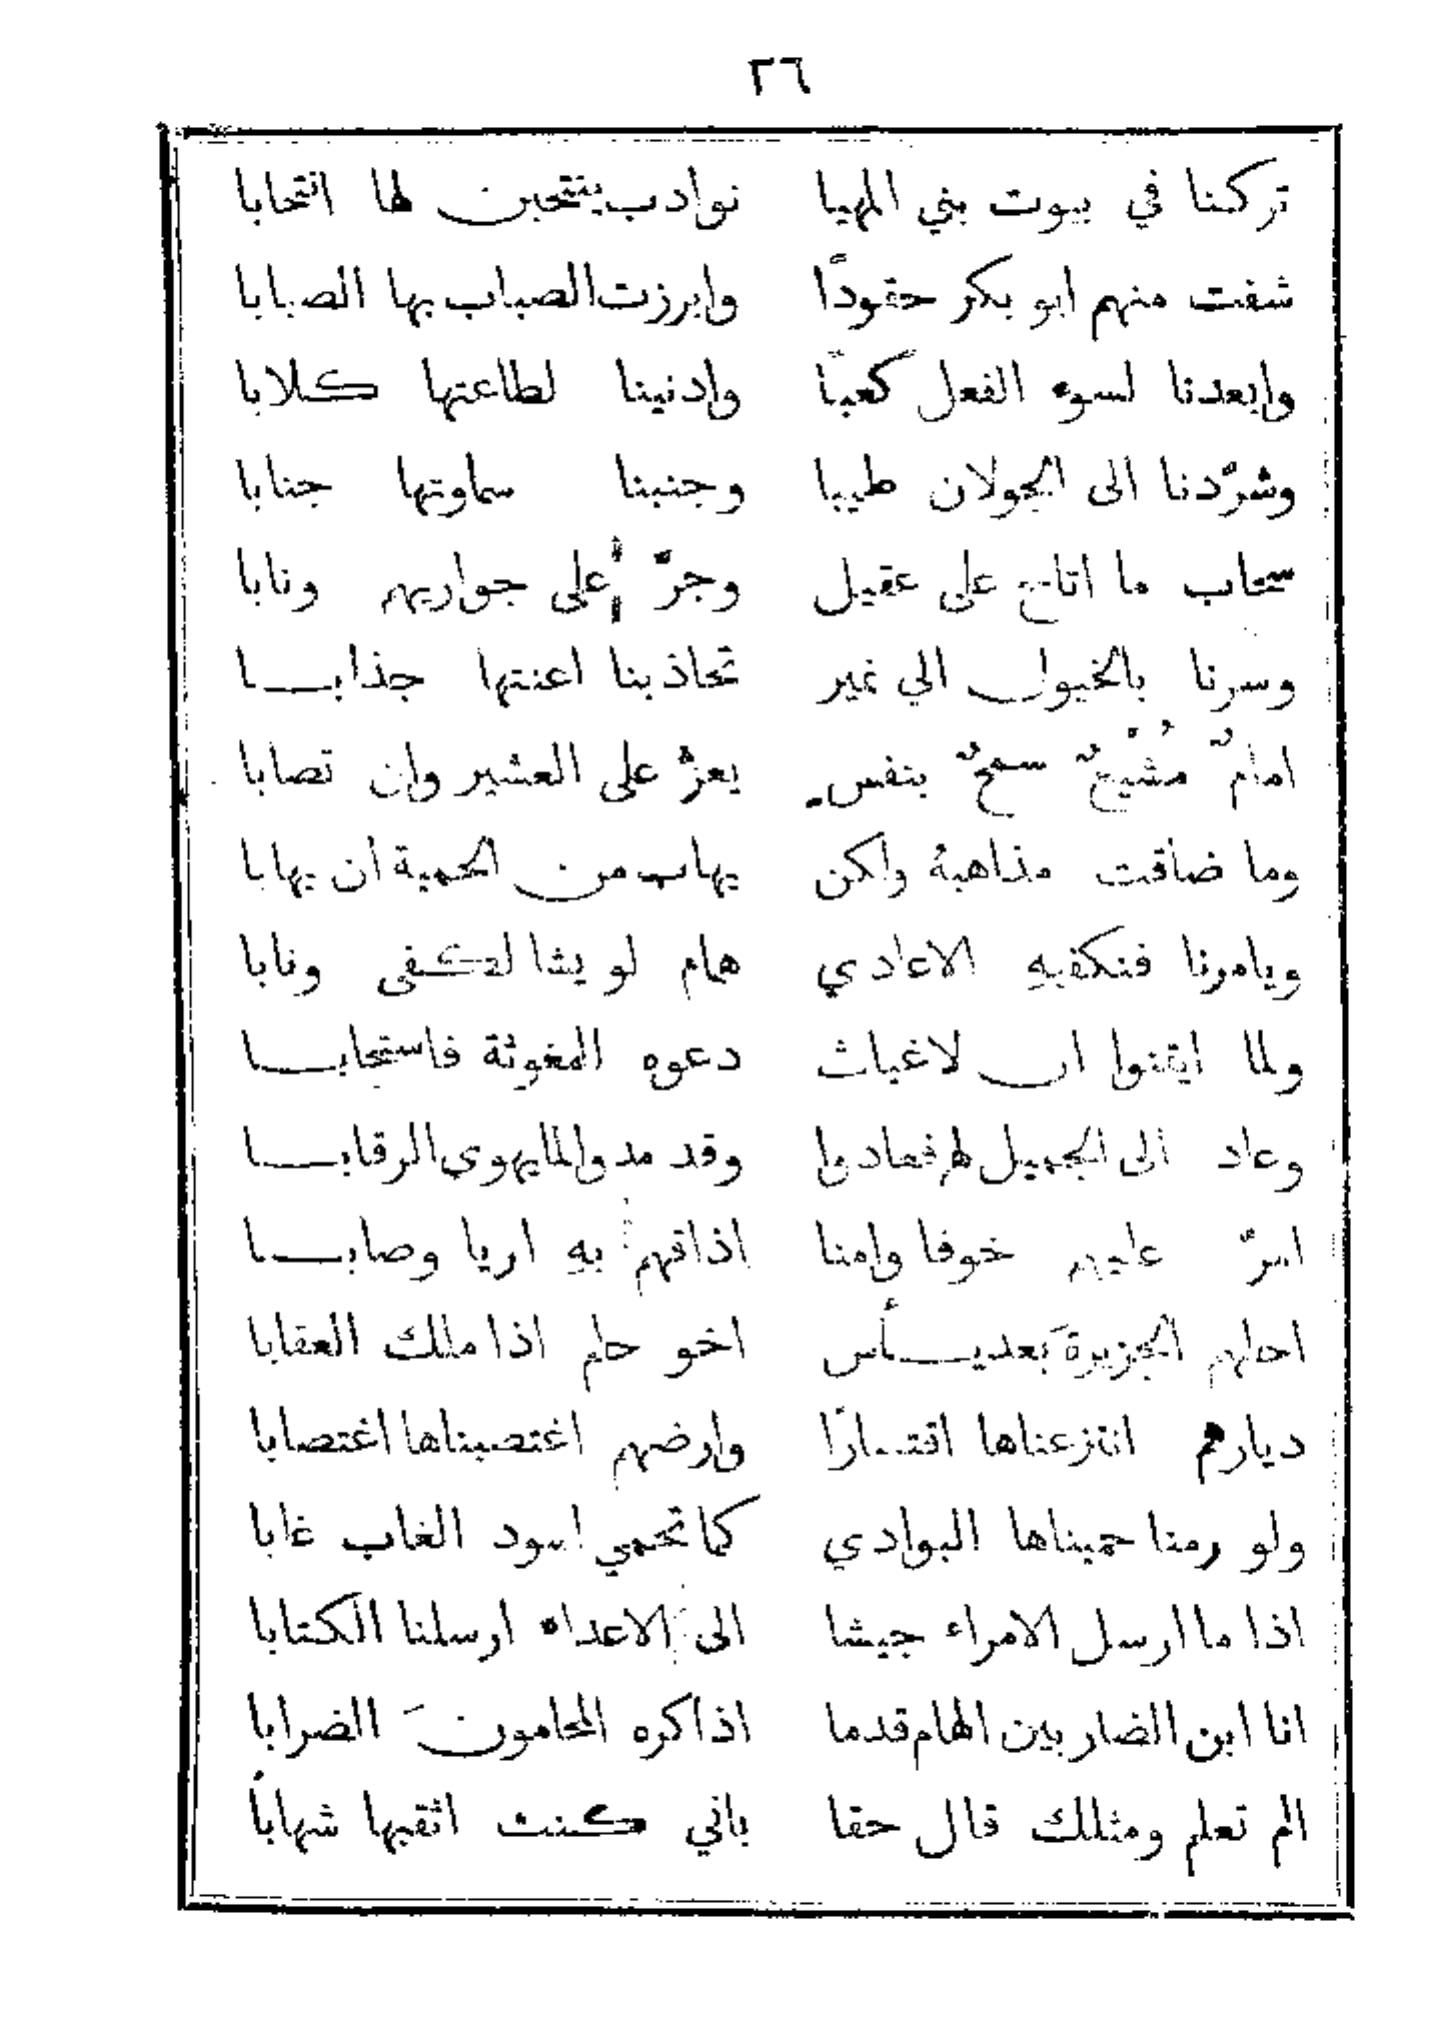 ٢٦
تركنا في بيوت بني المهيا نوادب ينتحبن لها انتحابا
شفت منهم ابو بكر حقودًا وابرزت الصباب بها الصبابا
وابعدنا لسوء الفعل كعبًا وادنينا لطاعتها كلابا
وشرّدنا الى الجولان طيبا وجنبنا سماوتها جنابا
سحاب ما اتاح على عقيل وجرّ على جواريهم ونابا
وسرنا بالخيول الي نمير تحاذبنا اعنتها جذابا
امامٌ مُشْيحٌ سمحٌ بنفس يعزّ على العشير وان تصابا
وما ضاقت مذاهبهُ ولكن يهاب من الحمية ان يهابا
ويامرنا فنكفيهِ الاعادي همام لو يشا لكفى ونابا
ولما ايقنوا ان لاغياث دعوه المغوثة فاستجابا
وعاد الى الجميل لهم فعادوا وقد مدوا لما يهوى الرقابا
امرّ عليهم خوفا وامنا اذاقهم بهِ اريا وصابا
احلهم الجزيرةَ بعد يأس اخو حلم اذا ملك العقابا
ديارهم انتزعناها اقتسارًا وارضهم اغتصبناها اغتصابا
ولو رمنا حميناها البوادي كما تحمي اسود الغاب غابا
اذا ما ارسل الامراء جيشا الى الاعداء ارسلنا الكتابا
انا ابن الضاربين الهام قدما اذا كره المحامونَ الضرابا
الم تعلم ومثلك قال حقا باني كنت اثقبها شهاباً